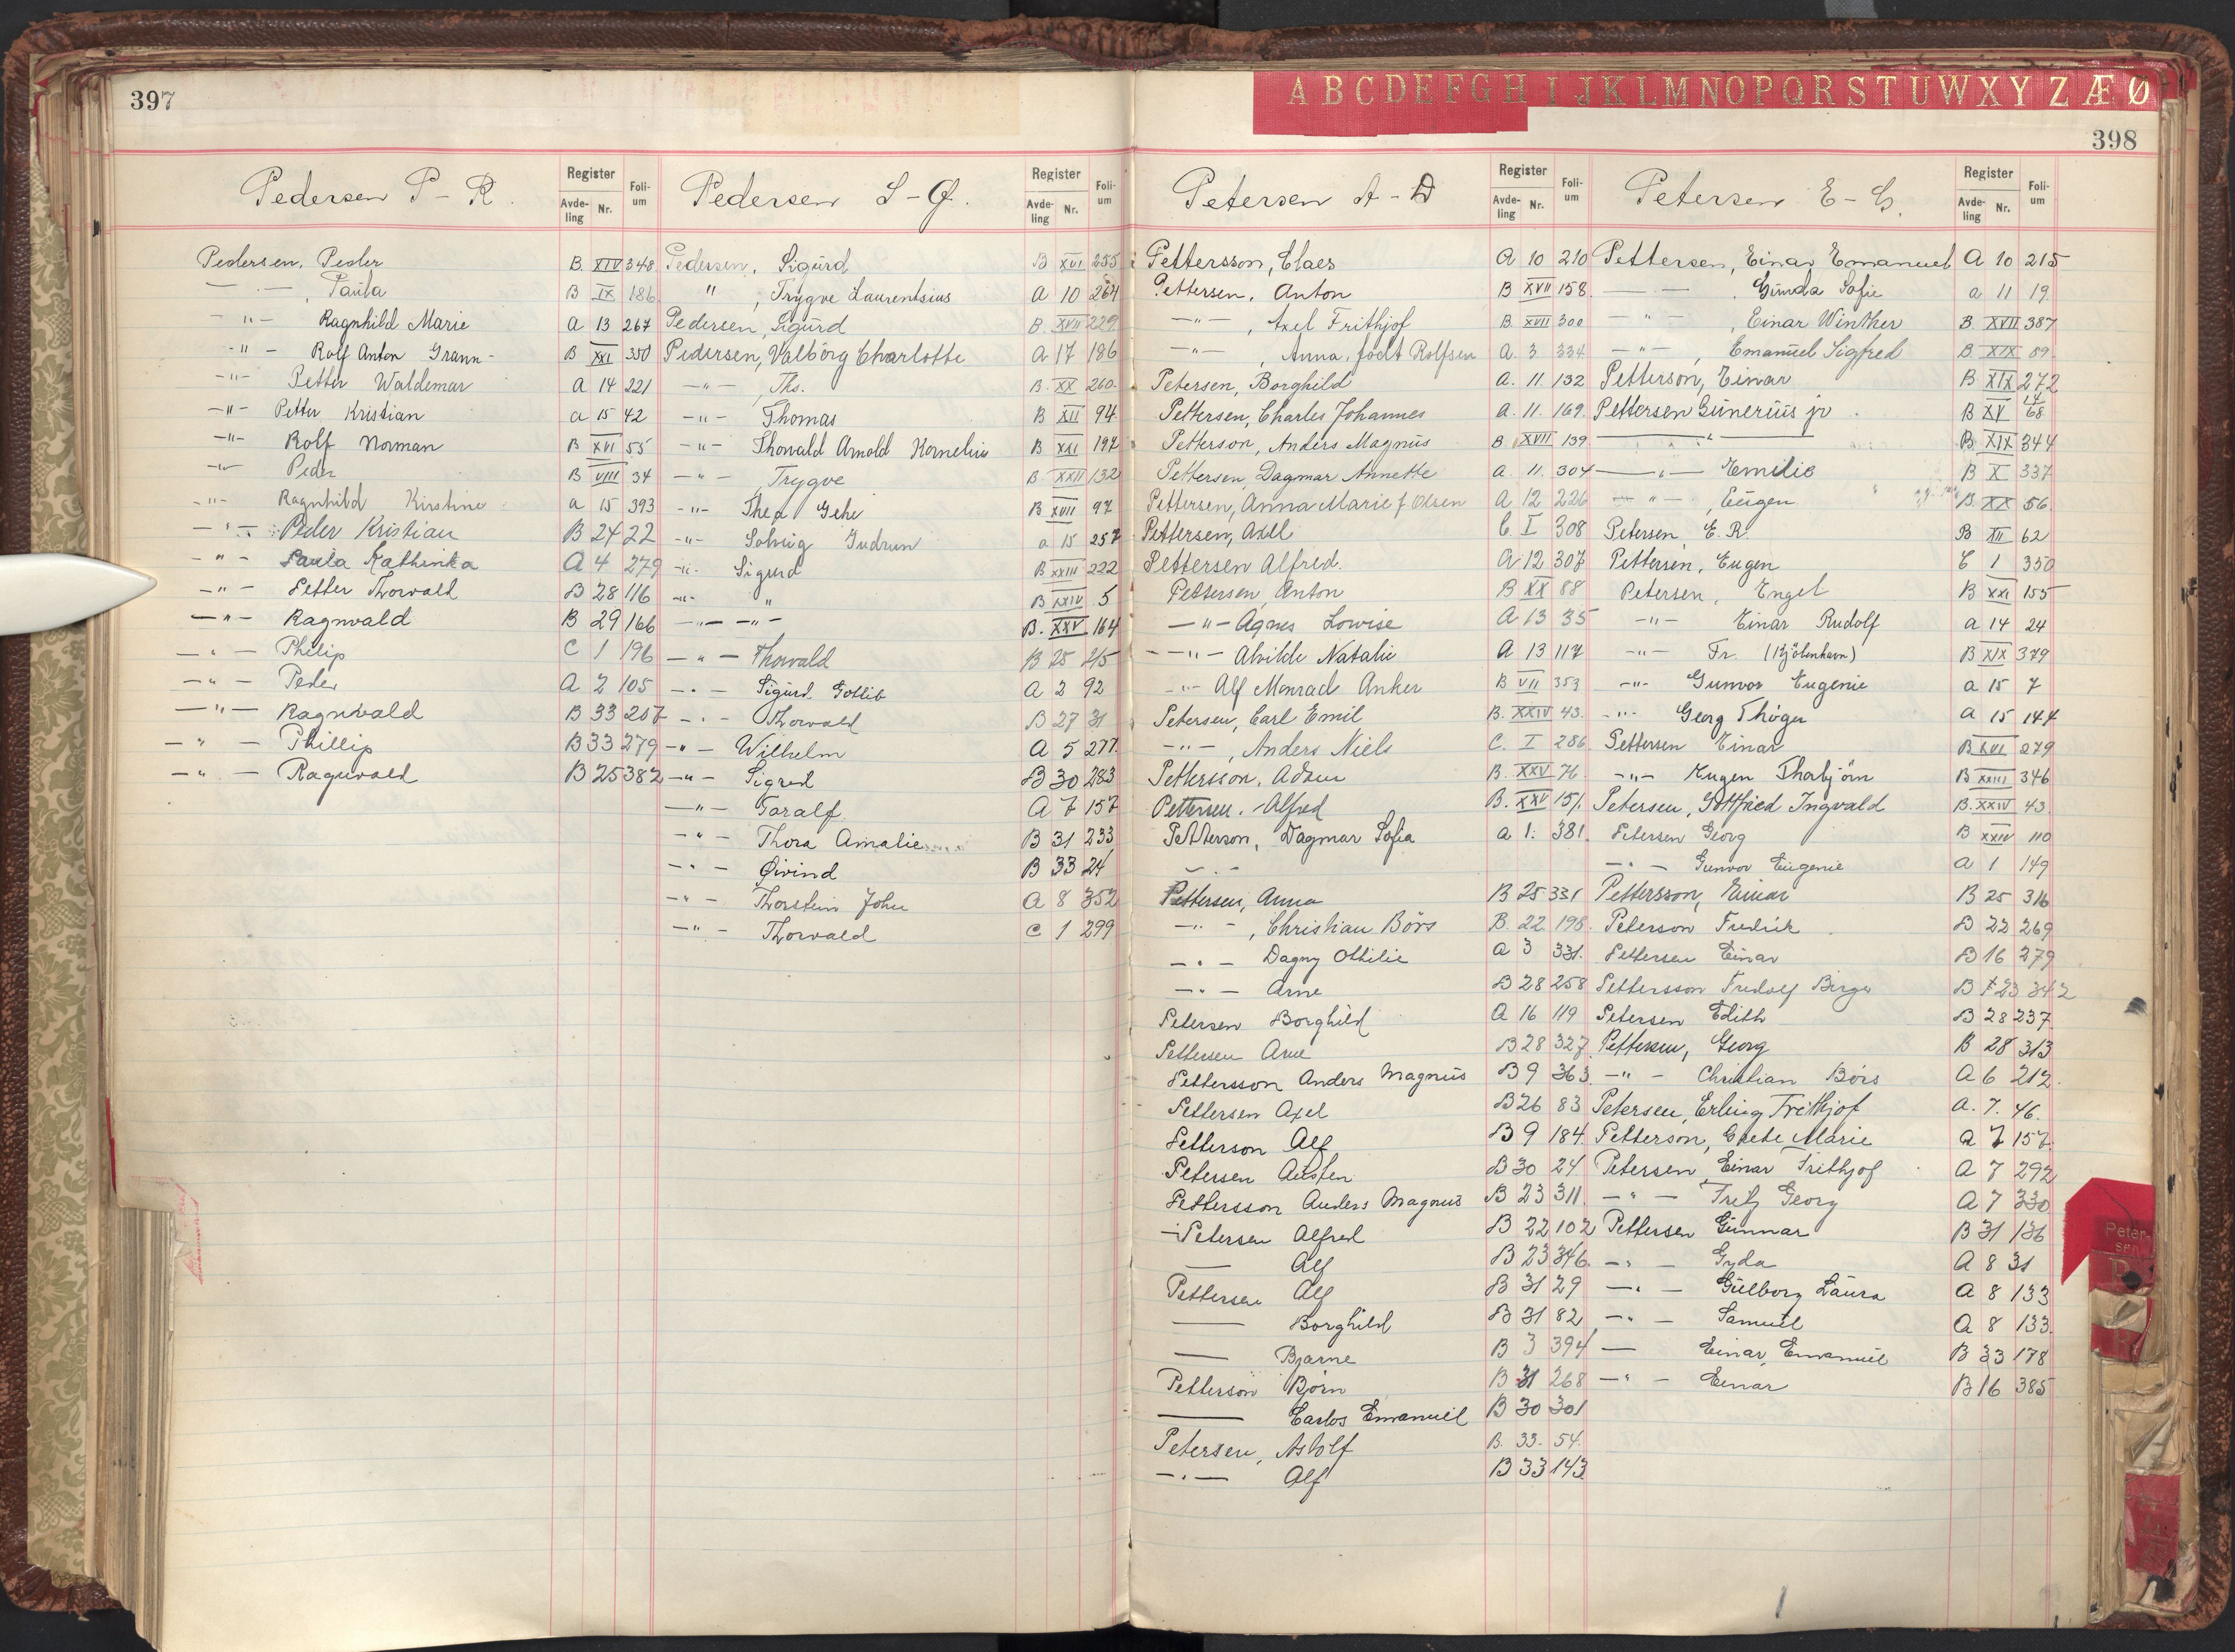 397
Pedersen P - R.
Register
Avde-ling Nr.
Foli-um
Pedersen, Peder B. XIV 348
— " — , Paula B IX 186
- " - Ragnhild Marie A 13 267
- " - Rolf Anton Grann- B XXI 350
- " - Petter Waldemar A 14 221
- " - Petter Kristian a 15 42
- " - Rolf Norman B XVI 55
- " - Peder B VIII 34
- " - Ragnhild Kirstine a 15 393
- " - Peder Kristian B 24 22
- " - Paula Kathinka A 4 279
- " - Petter Thorvald B 28 116
- " - Ragnvald B 29 166
- " - Philip C 1 196
- " - Peder A 2 105
- " - Ragnvald B 33 257
- " - Phillip B 33 279
- " - Ragnvald B 25 382
Pedersen S - Ø.
Register
Avde-ling Nr.
Foli-um
Pedersen, Sigurd B XVI 255
" , Trygve Laurentsius A 10 264
Pedersen, Sigurd B. XVII 229
Pedersen, Valborg Charlotte A 17 186
- " - , Ths. B. XX 260
- " - Thomas B XII 94
- " - Thorvald Arnold Kornelius B XXI 197
- " - Trygve B XXII 132
- " - Thea Gehe B XVII 97
- " - Solveig Gudrun a 15 257
- " - Sigurd B XXIII 222
- " - " B XXIV 5
- " - - " - B. XXV 164
- " - Thorvald B 25 215
- " - Sigurd Gotlib A 2 92
- " - Thorvald B 27 31
- " - Wilhelm A 5 277
- " - Sigred B 30 283
- " - Toralf A 7 157
- " - Thora Amalie B 31 233
- " - Øivind B 33 24
- " - Thorstein John A 8 352
- " - Thorvald C 1 299
A B C D E F G H I J K L M N O P Q R S T U W X Y Z Æ Ø
398
Petersen A - D
Register
Avde-ling Nr.
Foli-um
Pettersson, Claes A 10 210
Pettersen, Anton B XVII 158
- " - , Axel Frithjof B. XVII 300
- " - , Anna, født Rolfsen A. 3 334
Petersen, Borghild A. 11. 132
Pettersen, Charles Johannes A. 11. 169.
Petterson, Anders Magnus B XVII 139
Pettersen, Dagmar Annette a. 11. 304
Pettersen, Anna Marie f Olsen A 12 226
Pettersen, Axel C. I 308
Pettersen Alfred. A 12 307
Pettersen, Anton B XX 88
- " - Agnes Lovise A 13 35
- " - Alvilde Natalie A 13 117
- " - Alf Monrad Anker B VII 353
Petersen, Carl Emil B. XXIV 43.
- " - , Anders Niels C. I 286
Pettersson, Adam B. XXV 76
Pettersen, Alfred B. XXV 151.
Petterson, Dagmar Sofia a 1. 381.
- " -
Pettersen, Anna B 25 331
- " - , Christian Börs B. 22. 198.
- " - Dagny Othilie A 3 331.
- " - Arne B 28 258
Petersen Borghild A 16 119
Pettersen Arne B 28 327
Pettersson Anders Magnus B 9 363
Pettersen Axel B 26 83
Petterson Alf B 9 184
Petersen Austen B 30 24
Pettersson Anders Magnus B 23 311.
Petersen Alfred B 22 102
— Alf B 23 346
Pettersen Alf B 31 29
— Borghild B 31 82
— Bjarne B 3 394
Petterson Björn B 31 268
— Carlos Emanuel B 30 301
Petersen, Astolf B. 33. 54.
- " - Alf B 33 143
Petersen E - G.
Register
Avde-ling Nr.
Foli-um
Pettersen, Einar Emanuel A 10 215
— — , Gunda Sofie a 11 19.
- " - , Einar Winther B. XVII 387
- " - , Emanuel Sigfred B. XIX 89.
Petterson, Einar B XIX 272
Pettersen Gunerius jr. B XV 68
— " — B. XIX 344
- " - Emilie B X 337
- " - , Eugen B. XX 56.
Petersen, E. R. B XII 62
Pettersen, Eugen C 1 350
Petersen, Engel B XXI 155
- " - Einar Rudolf a 14 24
- " - Fr. (Kjöbenhavn) B XIX 379
- " - Gunvor Eugenie a 15 7
- " - Georg Thøger a 15 144
Pettersen Einar B XVI 279
- " - Eugen Thorbjörn B XXIII 346
Petersen, Gottfried Ingvald B. XXIV 43.
Petersen Georg B XXIV 110
- " - Gunvor Eugenie a 1 149
Pettersson, Einar B 25 316
Peterson Fredrik B 22 269
Pettersen Einar B 16 279
Pettersson Fredolf Birger B 23 342
Petersen Edith B 28 237
Pettersen, Georg B 28 313
- " - Christian Börs A 6 212.
Petersen, Erling Frithjof A. 7. 46.
Petterson, Grete Marie A 7 157.
Petersen Einar Frithjof A 7 292
- " - Fritz Georg A 7 330
Pettersen Gunnar B 31 136
- " - Gyda A 8 31
- " - Gulborg Laura A 8 133
- " - Samuel A 8 133.
— Einar Emanuel B 33 178
- " - Einar B 16 385
Peter-sen